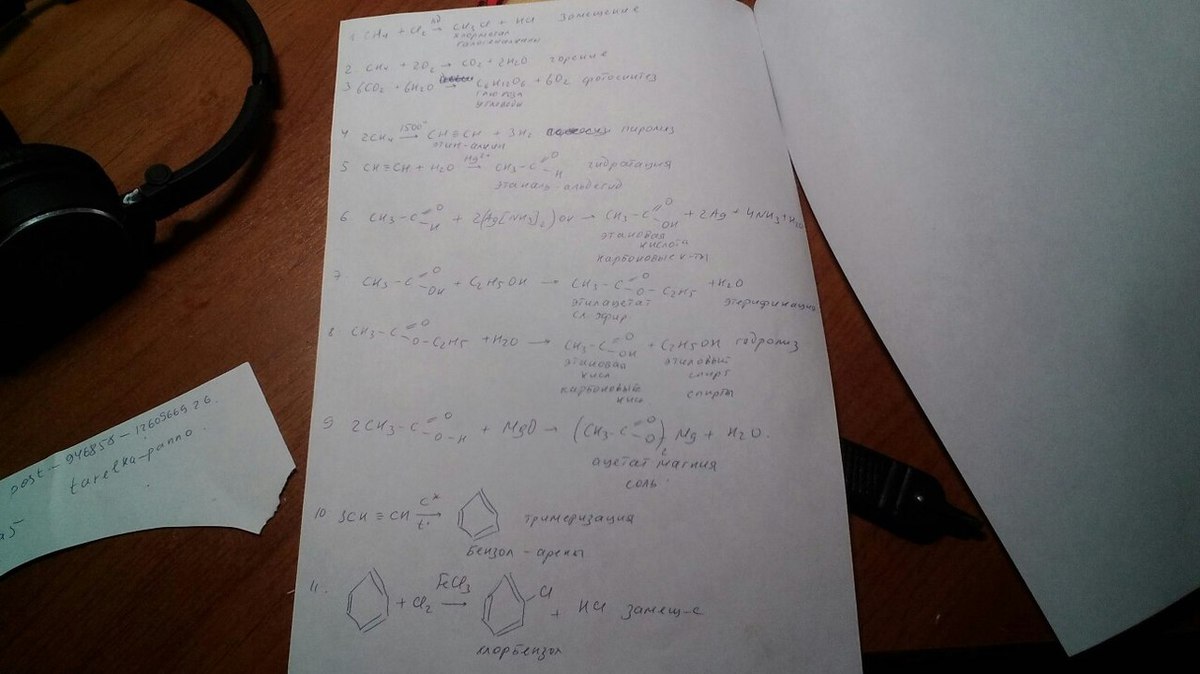 1. CH₄ + Cl₂ → CH₃Cl + HCl замещение
хлорметан
галогеналканы
2. CH₄ + 2O₂ → CO₂ + 2H₂O горение
3. 6CO₂ + 6H₂O → C₆H₁₂O₆ + 6O₂ фотосинтез
глюкоза
углеводы
4 2CH₄ 1500° → CH≡CH + 3H₂ пиролиз
этин-алкин
5 CH≡CH + H₂O Hg²⁺ → CH₃-C=O H гидратация
этаналь-альдегид
6 CH₃-C=O H + 2[Ag(NH₃)₂]OH → CH₃-C=O OH + 2Ag + 4NH₃ + H₂O
этановая
кислота
карбоновые к-ты
7 CH₃-C=O OH + C₂H₅OH → CH₃-C=O O-C₂H₅ + H₂O
этилацетат этерификация
сл эфир
8. CH₃-C=O O-C₂H₅ + H₂O → CH₃-C=O OH + C₂H₅OH гидролиз
этановая этиловый
кисл спирт
карбоновые спирты
кисл
9 2CH₃-C=O O-H + MgO → (CH₃-C=O O)₂ Mg + H₂O.
ацетат магния
соль
10 3CH≡CH C* t° →
тримеризация
бензол - арены
11. + Cl₂ FeCl₃ → Cl + HCl замещ-е
хлорбензол
post-946858-1260566926.
tarelka-panno.